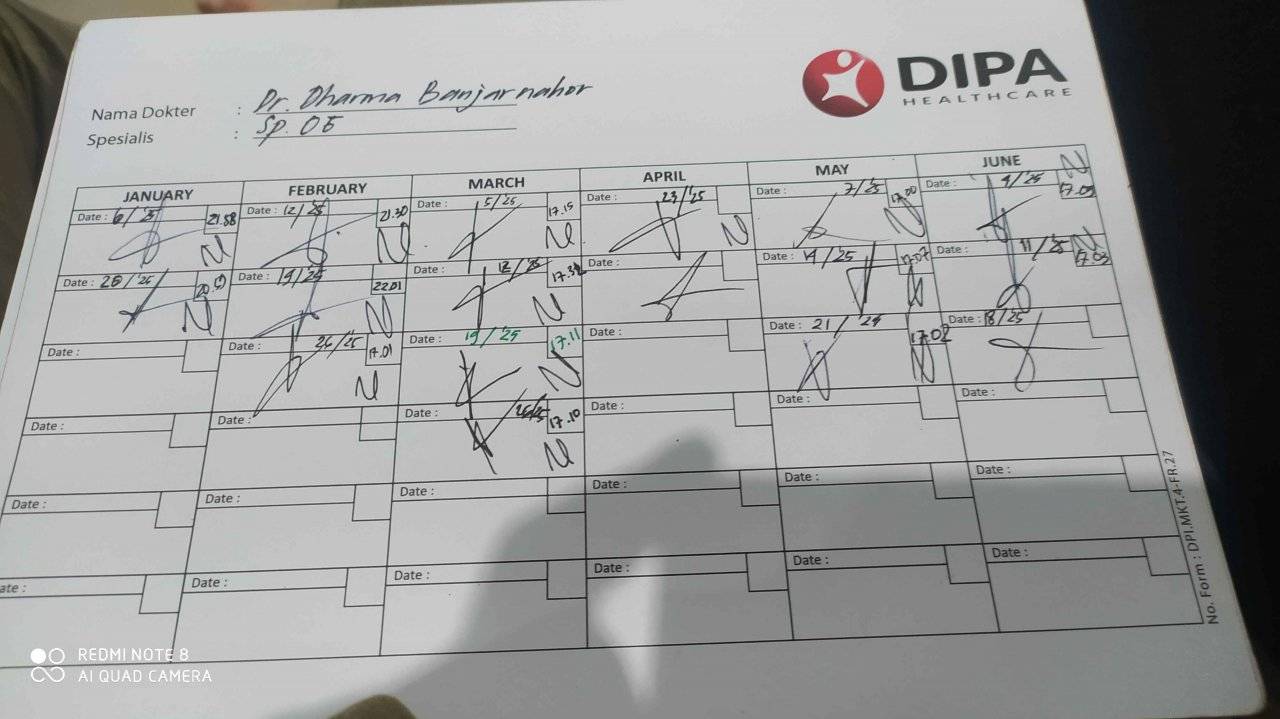 DIPA
HEALTHCARE
Nama Dokter : Dr. Dharma Banjarnahor
Spesialis : Sp. OG
JANUARY FEBRUARY MARCH APRIL MAY JUNE
Date : 6/'25 21.58 Date : 12/'25 21.30 Date : 5/'25 17.15 Date : 23/'25 Date : 7/'25 17.00 Date : 4/'25 17.03
Date : 20/'25 Date : 19/'25 22.01 Date : 12/'25 17.32 Date : Date : 14/'25 17.07 Date : 11/'25 17.03
Date : Date : 26/'25 17.01 Date : 19/'25 17.11 Date : Date : 21/ 17.02 Date : 18/25
Date : Date : Date : 17.10 Date : Date : Date :
Date : Date : Date : Date : Date : Date :
ate : Date : Date : Date : Date : Date :
No. Form : DPI.MKT.4-FR.27
REDMI NOTE 8
AI QUAD CAMERA